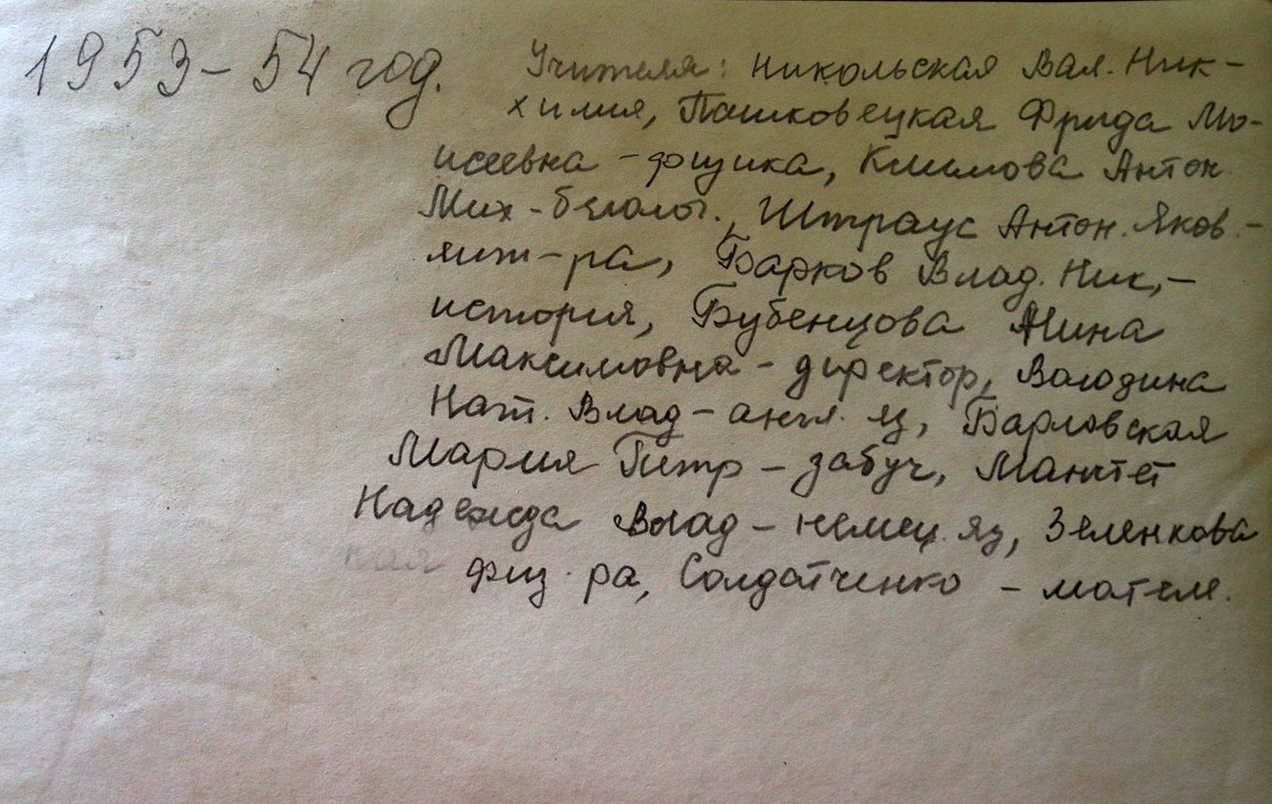 1953-54 год. Учителя: Никольская Вал. Ник-
химия, Пашковецкая Фрида Мо-
исеевна - физика, Климова Антон.
Мих - биолог., Штраус Антон. Яков. -
лит-ра, Барков Влад. Ник, -
история, Бубенцова Нина
Максимовна - директор, Володина
Нат. Влад - англ. яз, Барловская
Мария Петр - завуч, Мантет
Надежда Влад - немец. яз, Зеленкова
физ-ра, Солдатченко - матем.